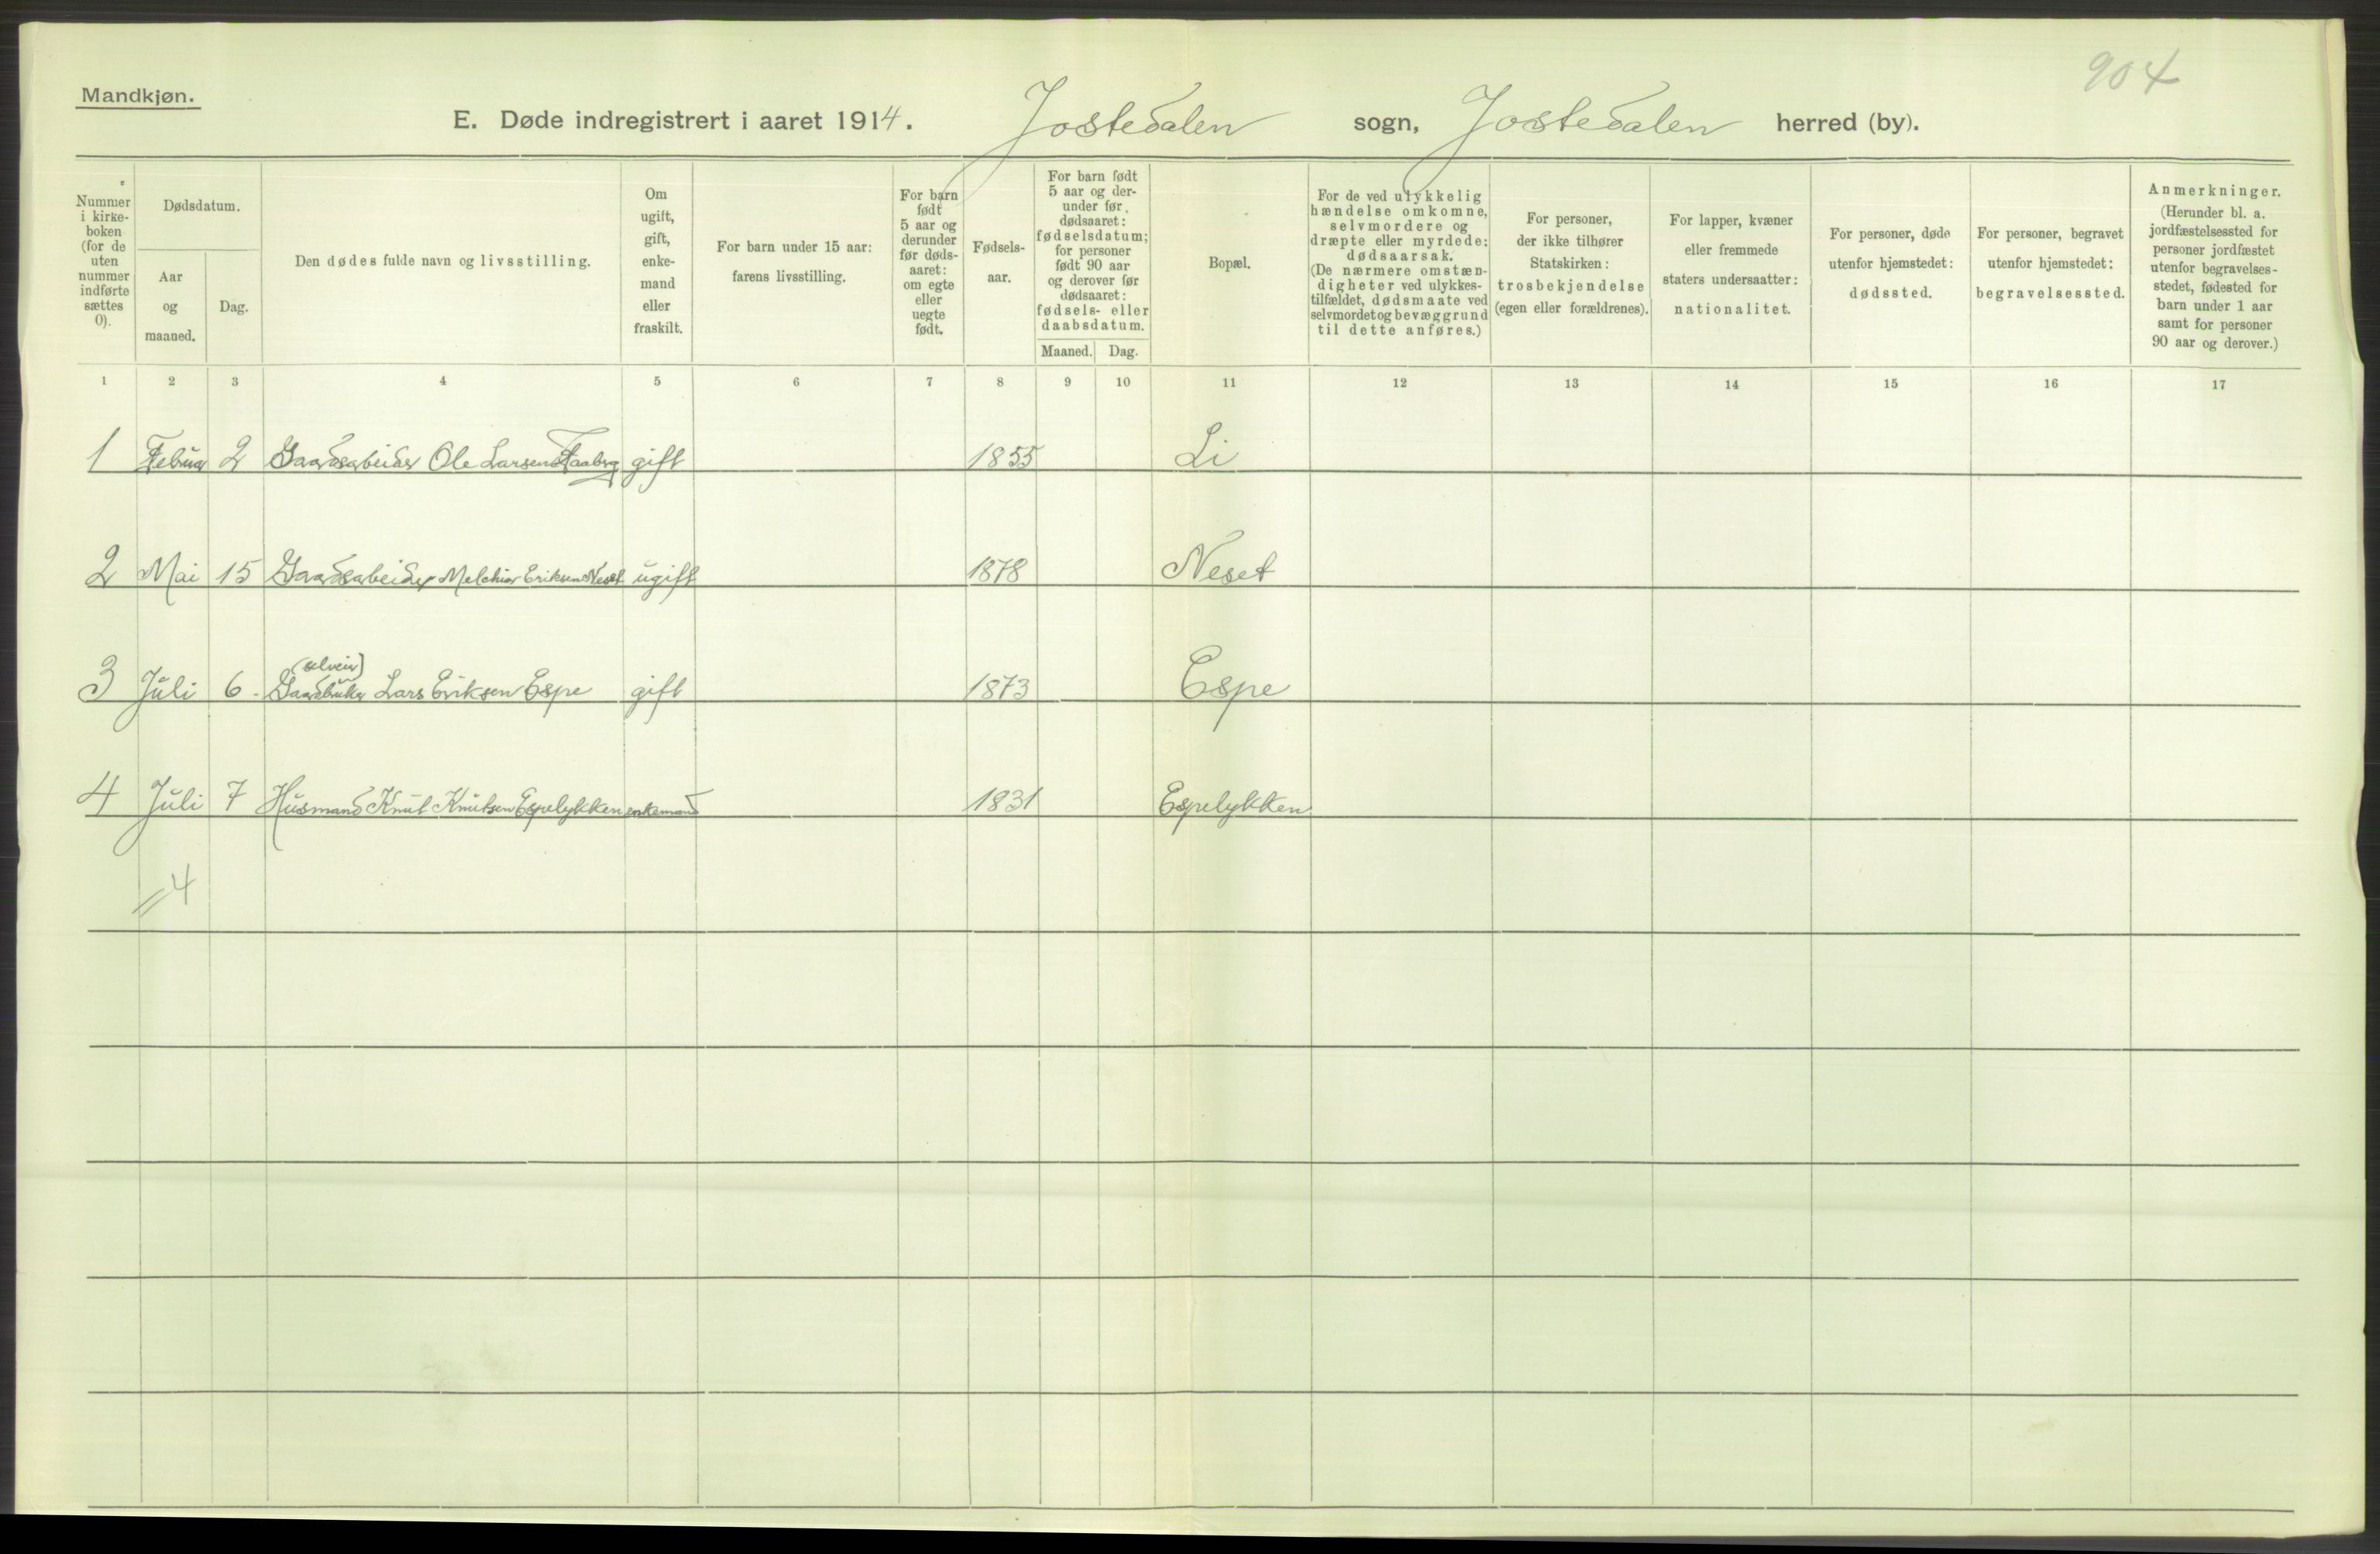 904
Mandkjøn.
E. Døde indregistrert i aaret 1914. Jostedalen sogn, Jostedalen herred (by).
Nummer
i kirke-
boken
(for de
uten
nummer
indførte
sættes
0).
Dødsdatum.
Aar
og
maaned.
Dag.
Den dødes fulde navn og livsstilling.
Om
ugift,
gift,
enke-
mand
eller
fraskilt.
For barn under 15 aar:
farens livsstilling.
For barn
født
5 aar og
derunder
før døds-
aaret:
om egte
eller
uegte
født.
Fødsels-
aar.
For barn født
5 aar og der-
under før
dødsaaret:
fødselsdatum;
for personer
født 90 aar
og derover før
dødsaaret:
fødsels- eller
daabsdatum.
Maaned. Dag.
Bopæl.
For de ved ulykkelig
hændelse omkomne,
selvmordere og
dræpte eller myrdede:
dødsaarsak.
(De nærmere omstæn-
digheter ved ulykkes-
tilfældet, dødsmaate ved
selvmordet og bevæggrund
til dette anføres.)
For personer,
der ikke tilhører
Statskirken:
trosbekjendelse
(egen eller forældrenes).
For lapper, kvæner
eller fremmede
staters undersaatter:
nationalitet.
For personer, døde
utenfor hjemstedet:
dødssted.
For personer, begravet
utenfor hjemstedet:
begravelsessted.
Anmerkninger.
(Herunder bl. a.
jordfæstelsessted for
personer jordfæstet
utenfor begravelses-
stedet, fødested for
barn under 1 aar
samt for personer
90 aar og derover.)
1 2 3 4 5 6 7 8 9 10 11 12 13 14 15 16 17
1 Februar 2 Gaardsarbeider Ole Larsen Faaberg gift 1855 Li
2 Mai 15 Gaardsarbeider Melchior Eriksen Neset ugift 1878 Neset
(selveier)
3 Juli 6 Gaardbruker Lars Eriksen Espe gift 1873 Espe
4 Juli 7 Husmand Knut Knutsen Espelykken enkemand 1831 Espelykken
=4